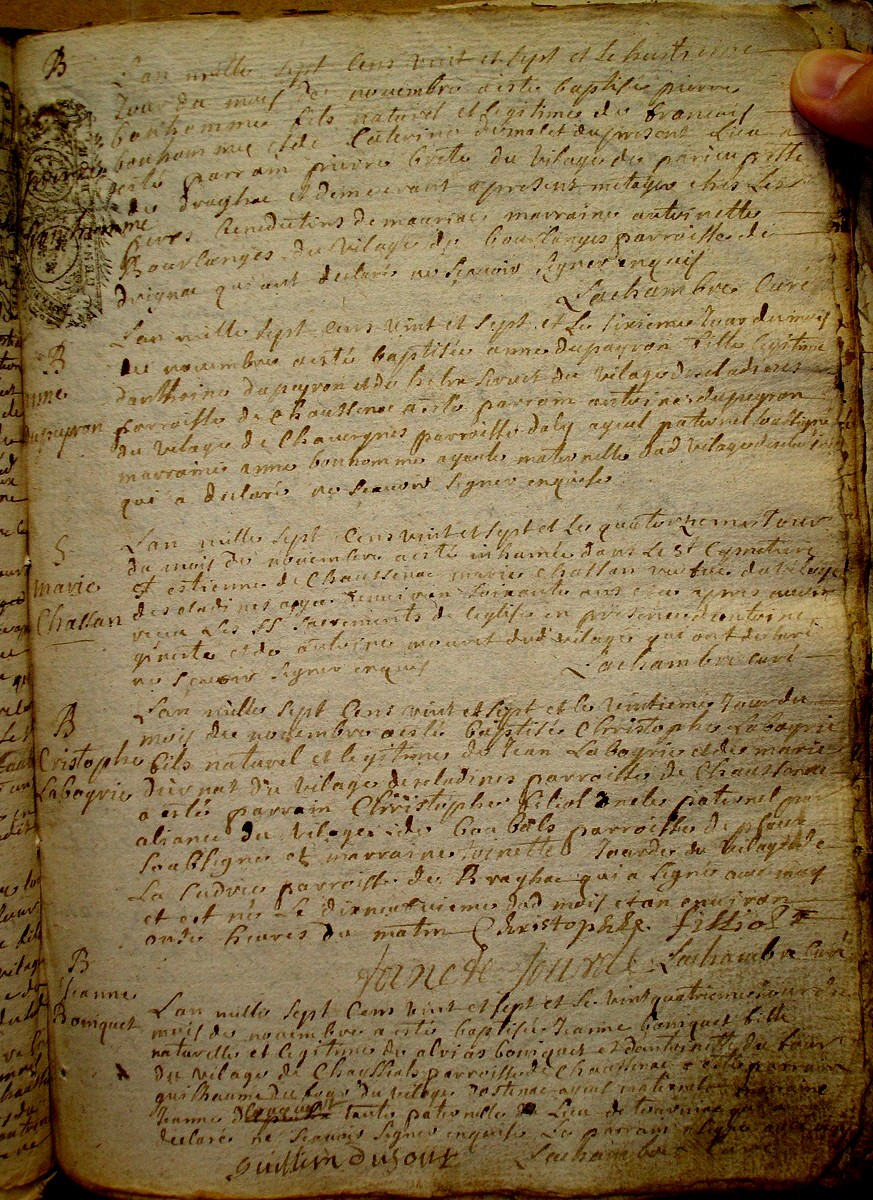 B
L'an mille sept cens vint et sept et le huitieme
Jour du mois de novembre a esté baptisé pierre
bonhomme fils naturel et legitime de francois
pierre
bonhomme et de Caterine du present Lieu a
esté parrain pierre du vilage de
bonhomme
de draghac et demeurant apresent metayer ches Les
peres benedictins de mauriac marraine antoinette
Bourlanges du vilage de bourlanges parroisse de
drignac qui ont declaré ne scavoir signer enquis
Lachambre Curé
B
L'an mille sept cens vint et sept et Le sixieme Jour du mois
de novembre a esté baptisée anne dupeyron fille legitime
anne
dupeyron
danthoine dupeyron et de du vilage descladines
parroisse de Chaussenac a esté parrain antoine dupeyron
du vilage de Chavergnes parroisse dally ayeul paternel soussigné
marraine anne bonhomme ayeule maternelle dud vilage
qui a declaré ne scavoir signer enquise
S
marie
Challan
L'an mille sept cens vint et sept et Le quatorzieme Jour
du mois de novembre a esté inhumée dans Le St Cymetiere
St estienne de Chaussenac marie Challan veufve du vilage
descladines agée environ soixante ans apres avoir
receu Les SS sacrements de leglise en presence dantoine
et de antoine dud vilage qui ont declaré
ne scavoir signer enquis Lachambre curé
B
Cristophe
Laboyrie
L'an mille sept cens vint et sept et le vintieme Jour du
mois de novembre a esté baptisé Christophe Laboyrie
fils naturel et legitime de Jean Laboyrie et de marie
du vilage descladines parroisse de Chaussenac
a esté parrain Christophe filiol oncle paternel par
aliance du vilage de parroisse de pleaux
soubsigné et marraine toinette Jourde du vilage de
La parroisse de Braghac qui a signé avec moy
et est né Le dixneufvieme dud mois et an environ
onze heures du matin Christophle filliol
toinete Jourde Lachambre Curé
B
Jeanne
Boniquet
L'an mille sept cens vint et sept et Le vint quatrieme Jour du
mois de novembre a esté baptisée Jeanne boniquet fille
naturelle et legitime de boniquet et dantoinette du four
du vilage de parroisse de Chaussenac a esté parrain
guilhaume du four du vilage dostenac ayeul maternel marraine
Jeanne tante paternelle Lieu de
declaré ne scavoir signer enquise Le parrain a signé avec moy
guillem dufour Lachambre Curé